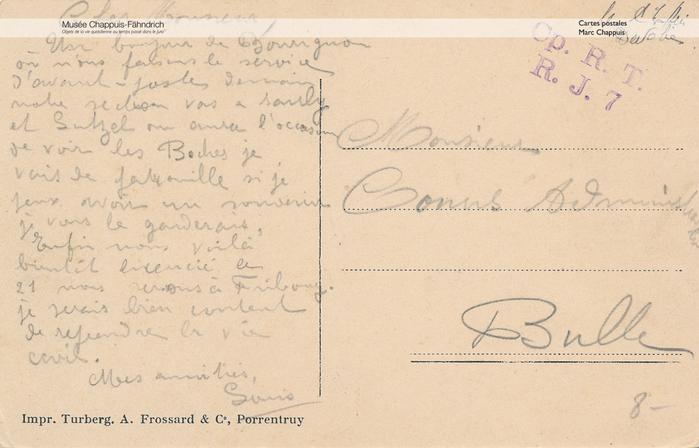 Musée Chappuis-Fähndrich
Objets de la vie quotidienne au temps passé dans le Jura
Cartes postales
Marc Chappuis
Cp. R. T.
R. J. 7
Cher Monsieur,
Un bonjour de
où nous faisons le service
d'avant-postes demain
notre section vas a
et on aura l'occasion
de voir les Boches je
vais de patrouille si je
peux avoir un souvenir
je vous le garderais,
Enfin nous voilà
bientôt licencié le
21 nous serons à Fribourg.
je serais bien content
de reprendre la vie
civil.
Mes amitiés,
Louis
Monsieur
Administ
Bulle
8-
Impr. Turberg. A. Frossard & Cᵉ, Porrentruy